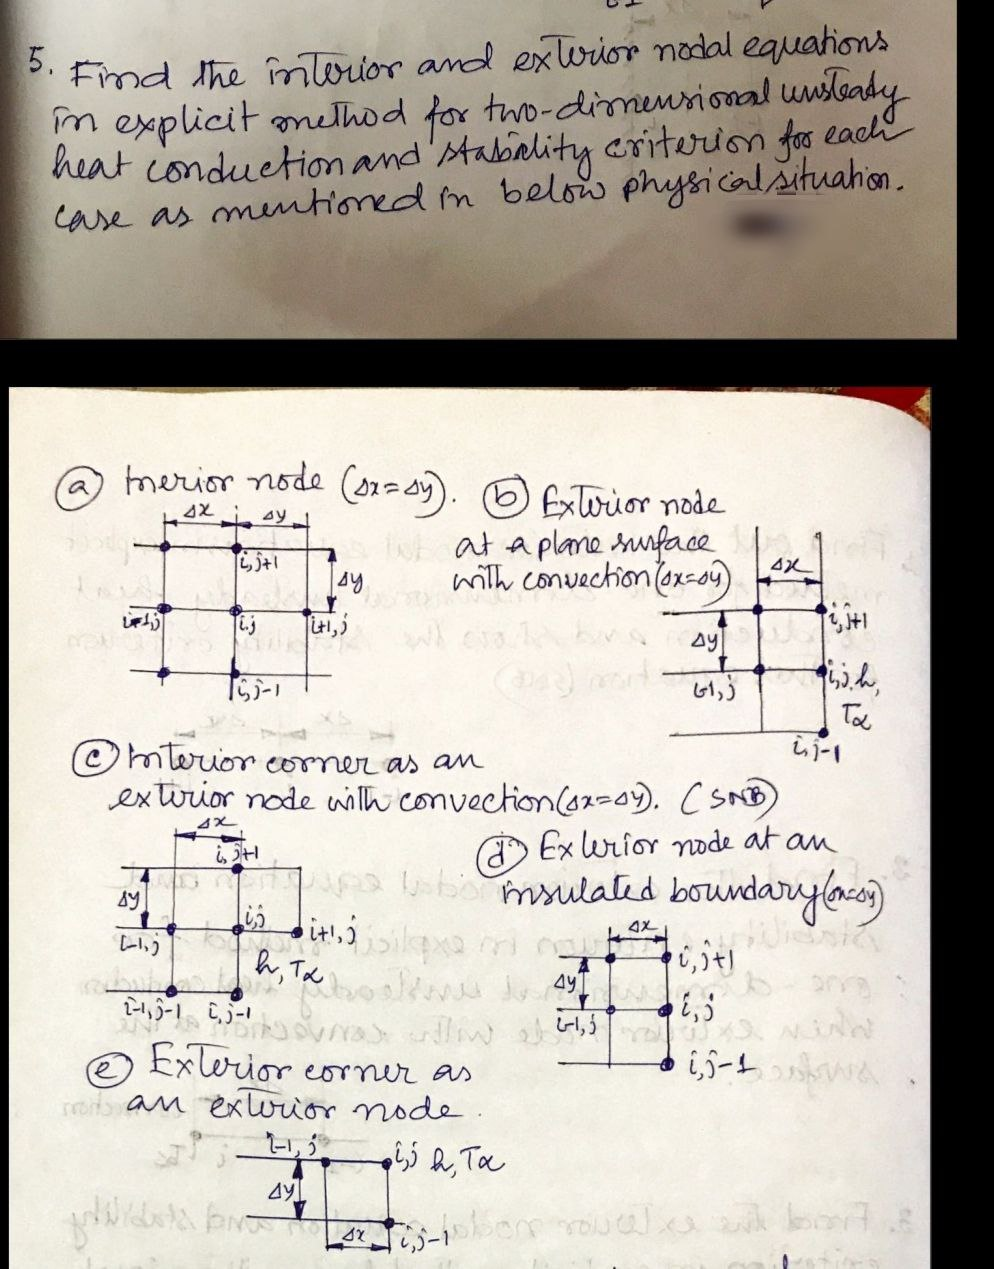 5. Find the interior and exterior nodal equations
in explicit method for two-dimensional unsteady
heat conduction and stability criterion for each
case as mentioned in below physical situation.
ⓐ Inerior node (Δx=Δy).
Δx Δy
i,j+1
Δy
i-1,j i,j i+1,j
i,j-1
ⓑ Exterior node
at a plane surface
with convection (Δx=Δy)
Δx
i,j+1
Δy
i-1,j i,j h,
T∝
i,j-1
ⓒ Interior corner as an
exterior node with convection (Δx=Δy).
Δx
i,j+1
Δy
i-1,j i,j i+1,j
h, T∝
i-1,j-1 i,j-1
ⓓ Exterior node at an
insulated boundary (Δx=Δy)
Δx
i,j+1
Δy
i-1,j i,j
i,j-1
ⓔ Exterior corner as
an exterior node.
i-1,j i,j h, T∝
Δy
Δx i,j-1